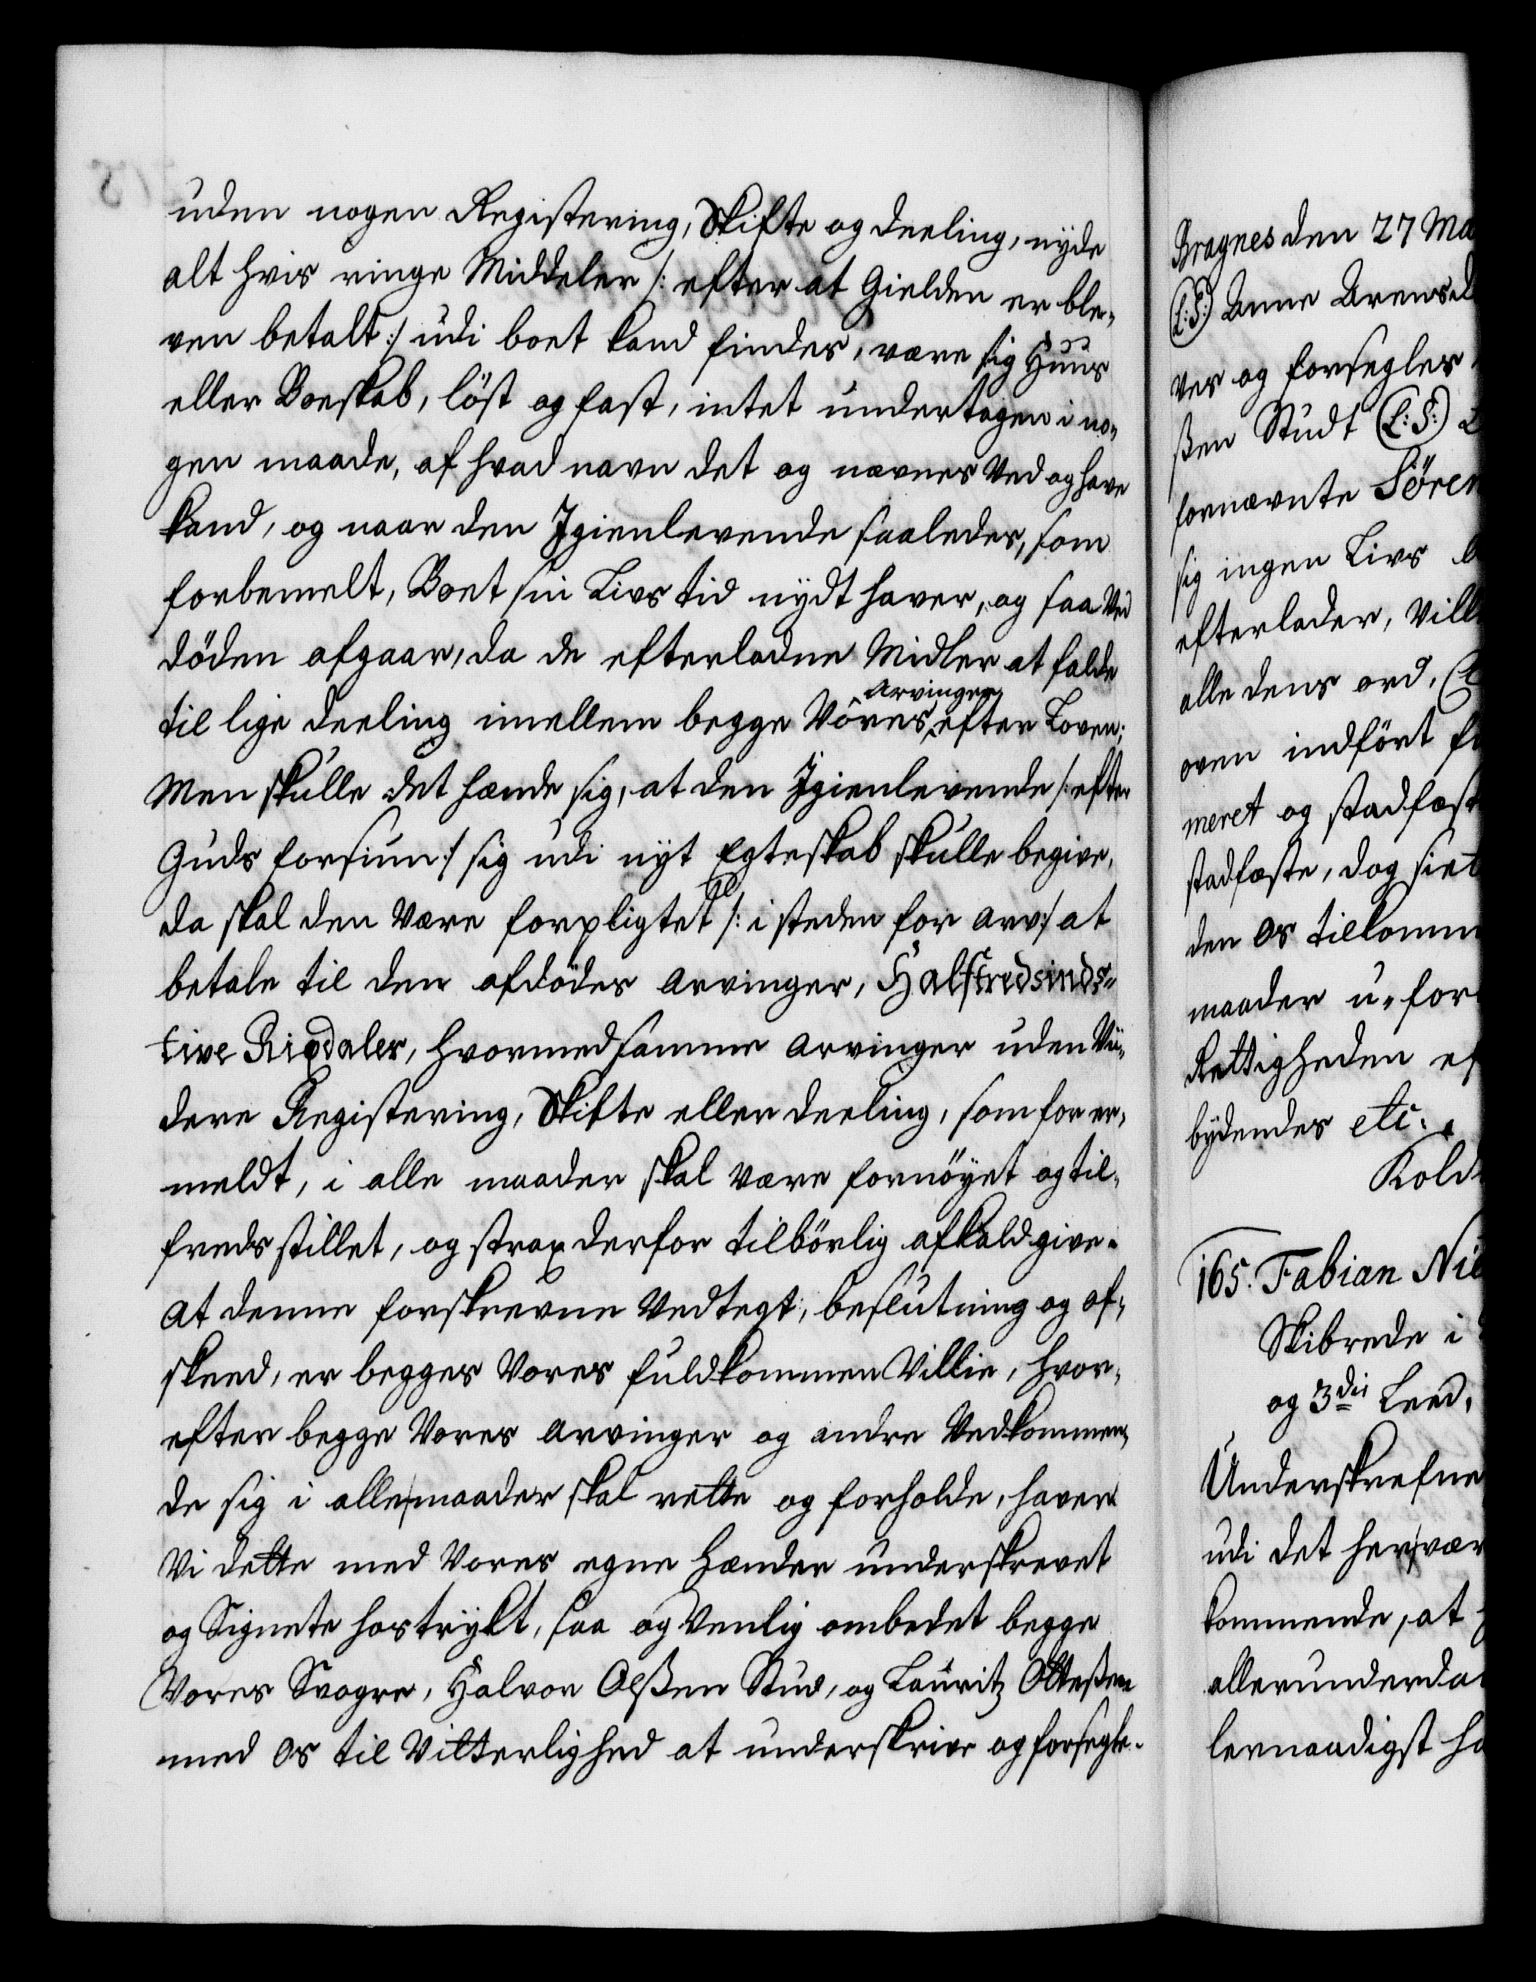 uden nogen Registering, Skifte og deeling, nyde
alt hvis ringe Middeler /: efter at Gielden er ble-
ven betalt :/ udi boet kand findes, være sig Huus
eller Boeskab, löst og fast, intet undertagen i no-
gen maade, af hvad navn det og nævnes Ved og have
kand, og naar den Igienlevende saaledes, som
forbemelt, Boet sin Livs tid nydt haver, og saa Ved
döden afgaar, da de efterladne Midler at falde
til lige deeling imellem begge Vores arvinger efter Loven;
Men skulle det hænde sig, at den Igienlevende /: efter
Guds forsiun :/ sig udi nyt Egteskab skulle begive,
da skal den Være forpligtet /: i steden for arv :/ at
betale til den afdödes arvinger, Halftredsinds-
tive Rixdaler, hvormed samme arvinger uden Vii-
dere Registering, Skifte eller deeling, som for er-
meldt, i alle maader skal være fornöyet og til-
freds stillet, og strax derfor tilbörlig afkald give.
At denne forskrevne Vedtegt, beslutning og af-
skeed, er begges Vores fuldkommen Villie, hvor-
efter begge Vores arvinger og andre Vedkommen-
de sig i alle maader skal rette og forholde, haver
Vi dette med Vores egne hænder underskrevet
og Signete hostrykt, saa og Venlig ombedet begge
Vores Svogre, Halvor Olßen Stud, og Lauritz Olteßen
med os til Vitterlighed at underskrive og forsegle.
Bragnes den 27 Ma
(L:S:) Anne Arensd
ves og forsegles
ßen Studt (L:S:)
fornævnte Sören
sig ingen Livs
efterlader, Vill
alle dens ord,
oven indfört
meret og stadfæst
stadfæste, dog siet
den os tilkomm
maader u-for
Rettigheden ef
bydendes etc:
Kold
165. Fabian Nie
Skibrede i
og 3die Leed,
Underskrefne
udi det hersvær
kommende, at
allerunderda
lernaadigst ha